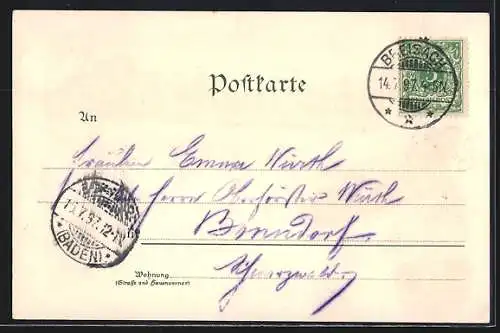 BREISACH
14.7.97. 4-5N.
Postkarte
An
Fräulein Emma Würth
Herrn Oberförster Würth
15.7.97. 12-1N.
(BADEN)
Bonndorf
Schwarzwald.
Wohnung
(Straße und Hausnummer)